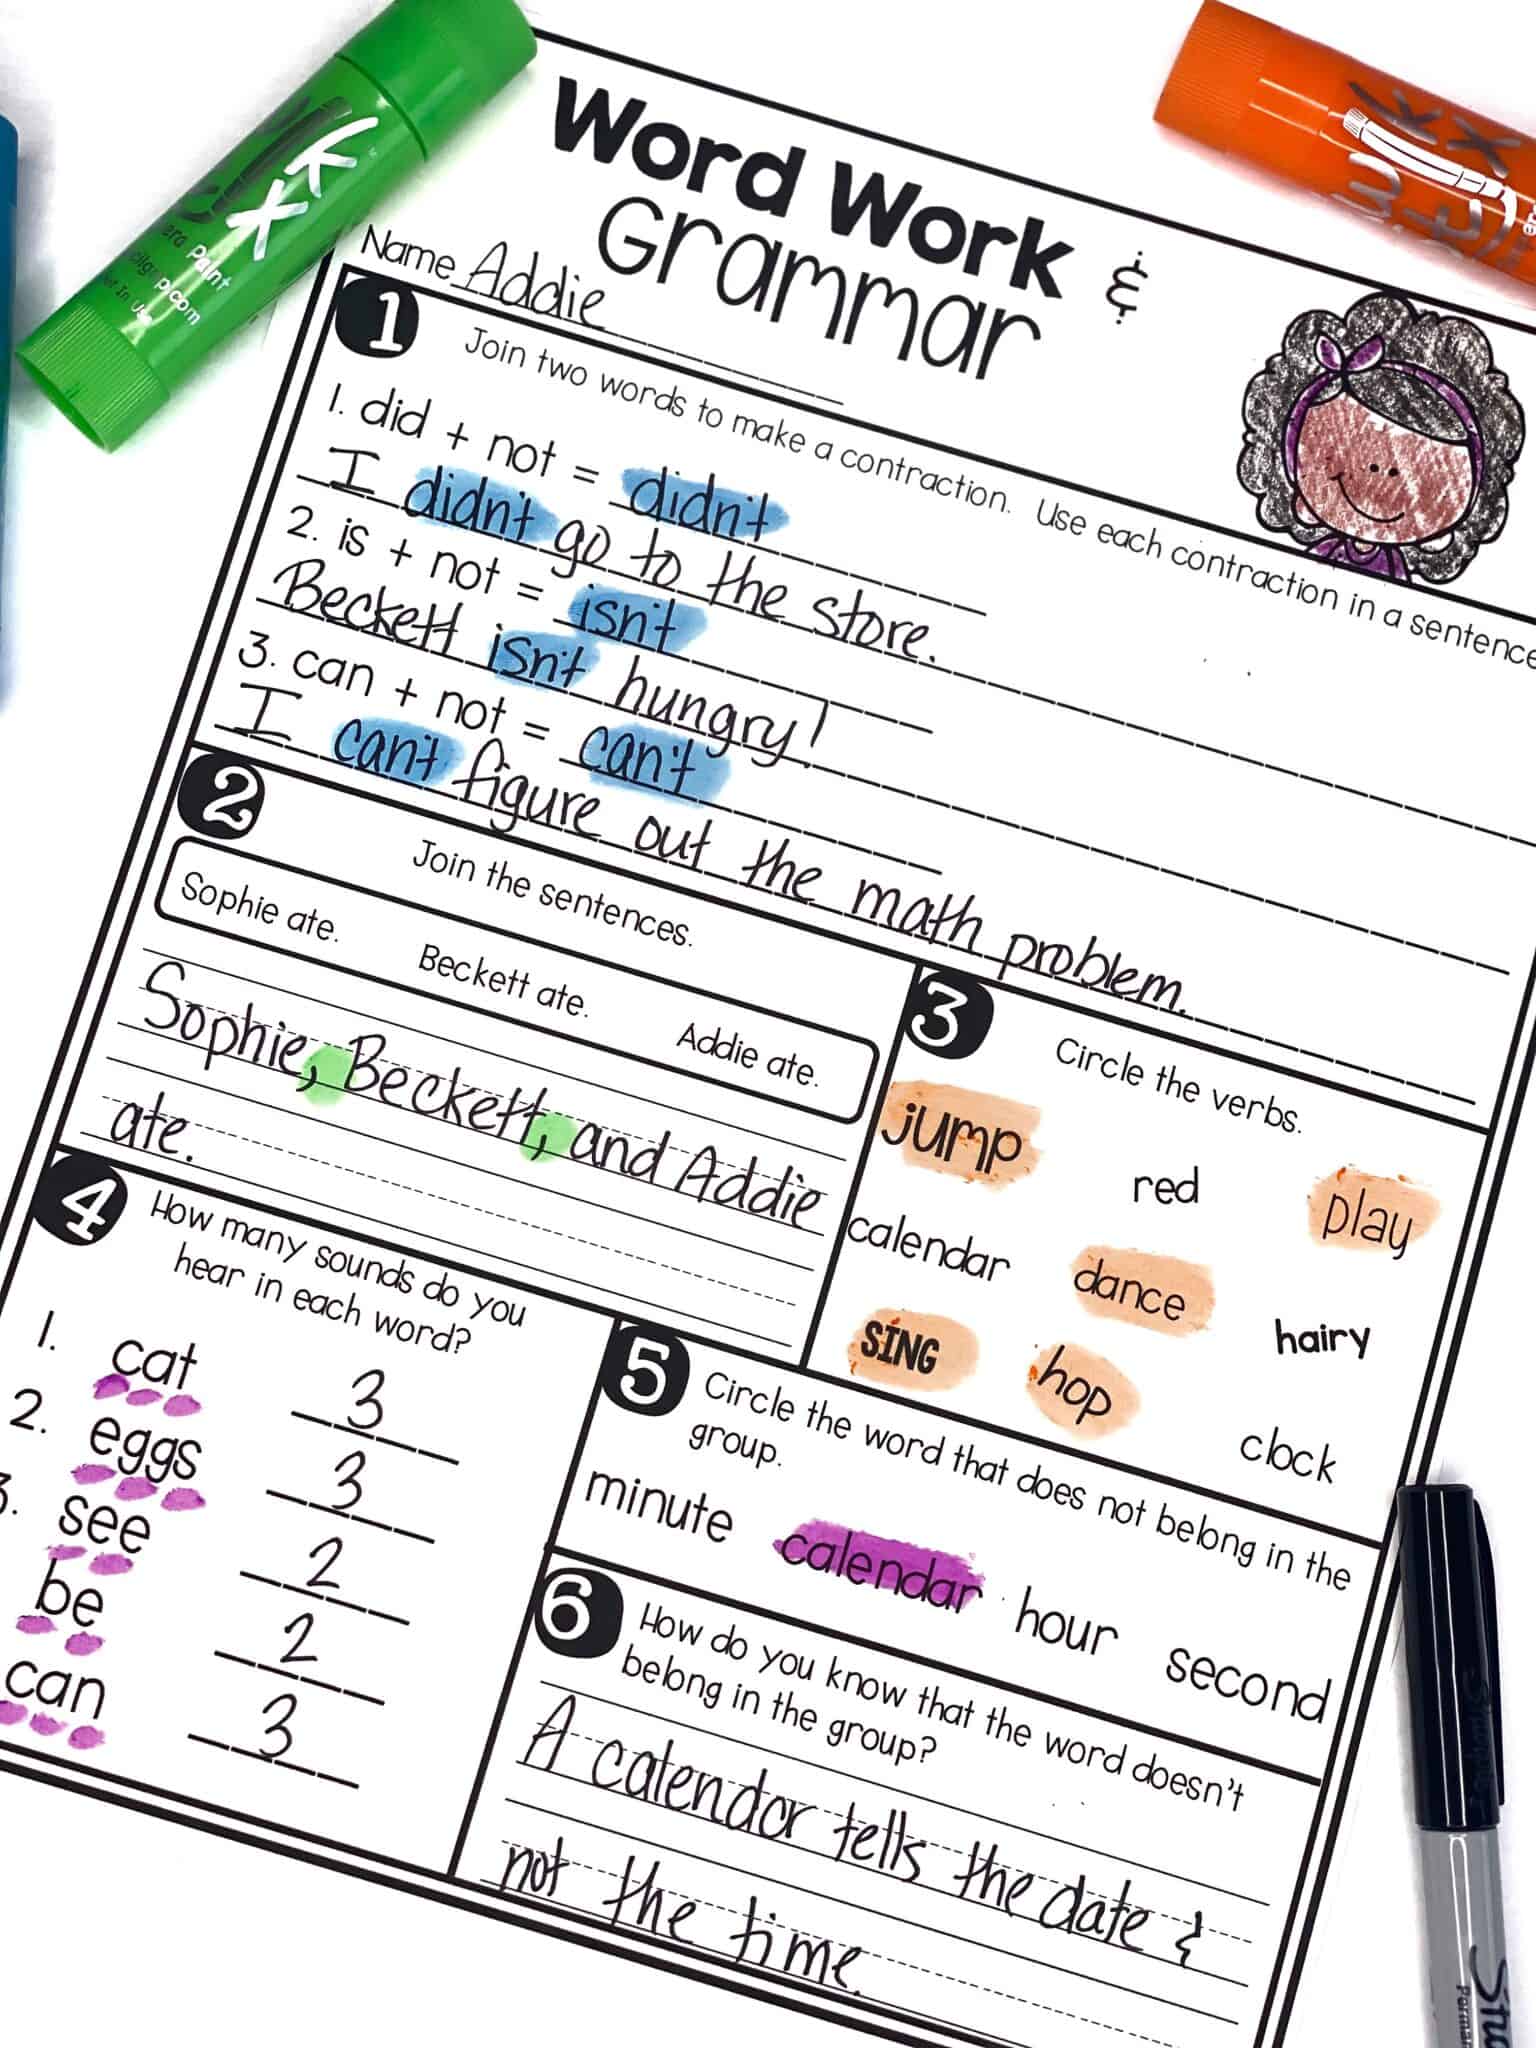 Word Work &
Grammar
Name Addie
1 Join two words to make a contraction. Use each contraction in a sentence
1. did + not = didn't
I didn't go to the store.
2. is + not = isn't
Beckett isn't hungry!
3. can + not = can't
I can't figure out the math problem.
2 Join the sentences.
Sophie ate. Beckett ate. Addie ate.
Sophie, Beckett, and Addie
ate.
3 Circle the verbs.
jump red play
calendar dance hairy
SING hop clock
4 How many sounds do you
hear in each word?
1. cat 3
2. eggs 3
3. see 2
be 2
can 3
5 Circle the word that does not belong in the
group.
minute calendar hour second
6 How do you know that the word doesn't
belong in the group?
A calendar tells the date &
not the time.
kx
Paint